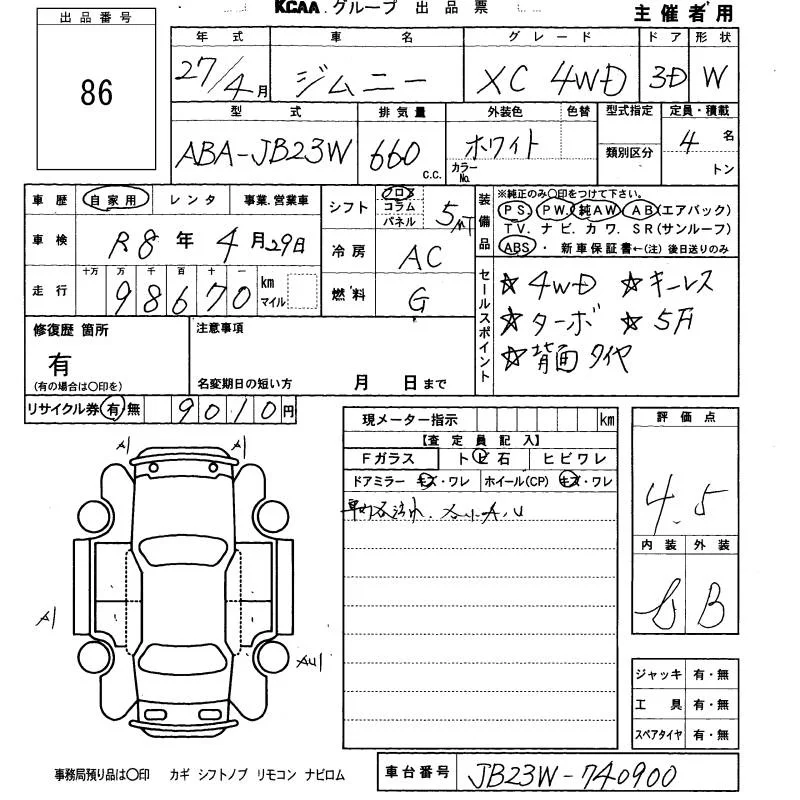 KCAA.グループ 出品票
主催者用
出品番号
86
年式 車名 グレード ドア 形状
27/4月 ジムニー XC 4WD 3D W
型式 排気量 外装色 色替 型式指定 定員・積載
ABA-JB23W 660 c.c. ホワイト カラーNo. 類別区分 4 名 トン
車歴 自家用 レンタ 事業.営業車
車検 R8 年 4 月 29日
走行 十万 万 千 百 十 一 km マイル
98670
シフト フロア コラム パネル 5MT
冷房 AC
燃料 G
装備品 ※純正のみ〇印をつけて下さい。
PS. PW. 純AW AB(エアバック)
TV. ナビ. カワ. SR(サンルーフ)
ABS. 新車保証書←(注)後日送りのみ
セールスポイント
☆4WD ☆キーレス
☆ターボ ☆5F
☆背面タイヤ
修復歴 箇所
有
(有の場合は〇印を)
注意事項
名変期日の短い方 月 日まで
リサイクル券 有・無 9010円
現メーター指示 km
【査定員記入】
Fガラス トビ石 ヒビワレ
ドアミラー キズ・ワレ ホイール(CP) キズ・ワレ
評価点
4.5
内装 外装
B
A1 A1
A1
AU1
ジャッキ 有・無
工具 有・無
スペアタイヤ 有・無
事務局預り品は〇印 カギ シフトノブ リモコン ナビロム
車台番号 JB23W-740900